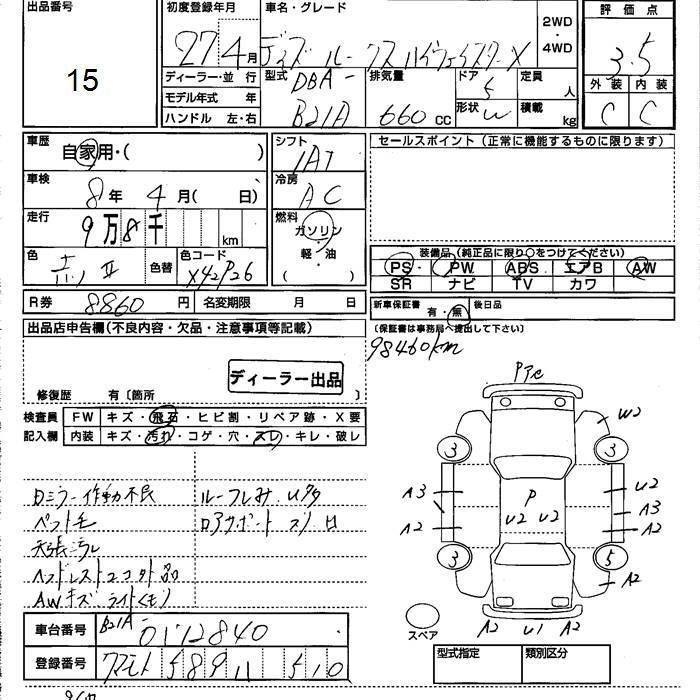 出品番号
15
初度登録年月
27 4月
車名・グレード
デイズ ルークス ハイウェイスターX
2WD
・
4WD
評価点
3.5
ディーラー・並行
モデル年式 年
ハンドル 左・右
型式 DBA-
B21A
排気量
660 cc
ドア 5
形状
定員 人
積載 kg
外装 内装
C C
車歴
自家用・( )
車検
8年 4月( 日)
走行
9万8千 km
色
赤II
色替
色コード
X42P26
シフト
IAT
冷房
AC
燃料
ガソリン
・
軽・油
( )
セールスポイント (正常に機能するものに限ります)
装備品(純正品に限り○をつけてください)
PS PW ABS エアB AW
SR ナビ TV カワ
R券 8860円 名変期限 月 日
新車保証書 有・無 後日品
(保証書は事務局へ提出して下さい)
98460km
出品店申告欄(不良内容・欠品・注意事項等記載)
ディーラー出品
修復歴 有〔箇所 〕
検査員 FW キズ・飛石・ヒビ割・リペア跡・X要
記入欄 内装 キズ・汚れ・コゲ・穴・スレ・キレ・破レ
ロミラー作動不良
ペット毛
天張ヨゴレ
ヘッドレスト2コ欠品
AWキズ ライトくもり
ルーフしみ
車台番号 B21A-
0172840
登録番号
クマモト 589 11 510
P
W2
3
3
A3
A2
P
U2 U2
U2
A3
A2
3
5
A2
スペア
A2 U1 A2
型式指定 類別区分